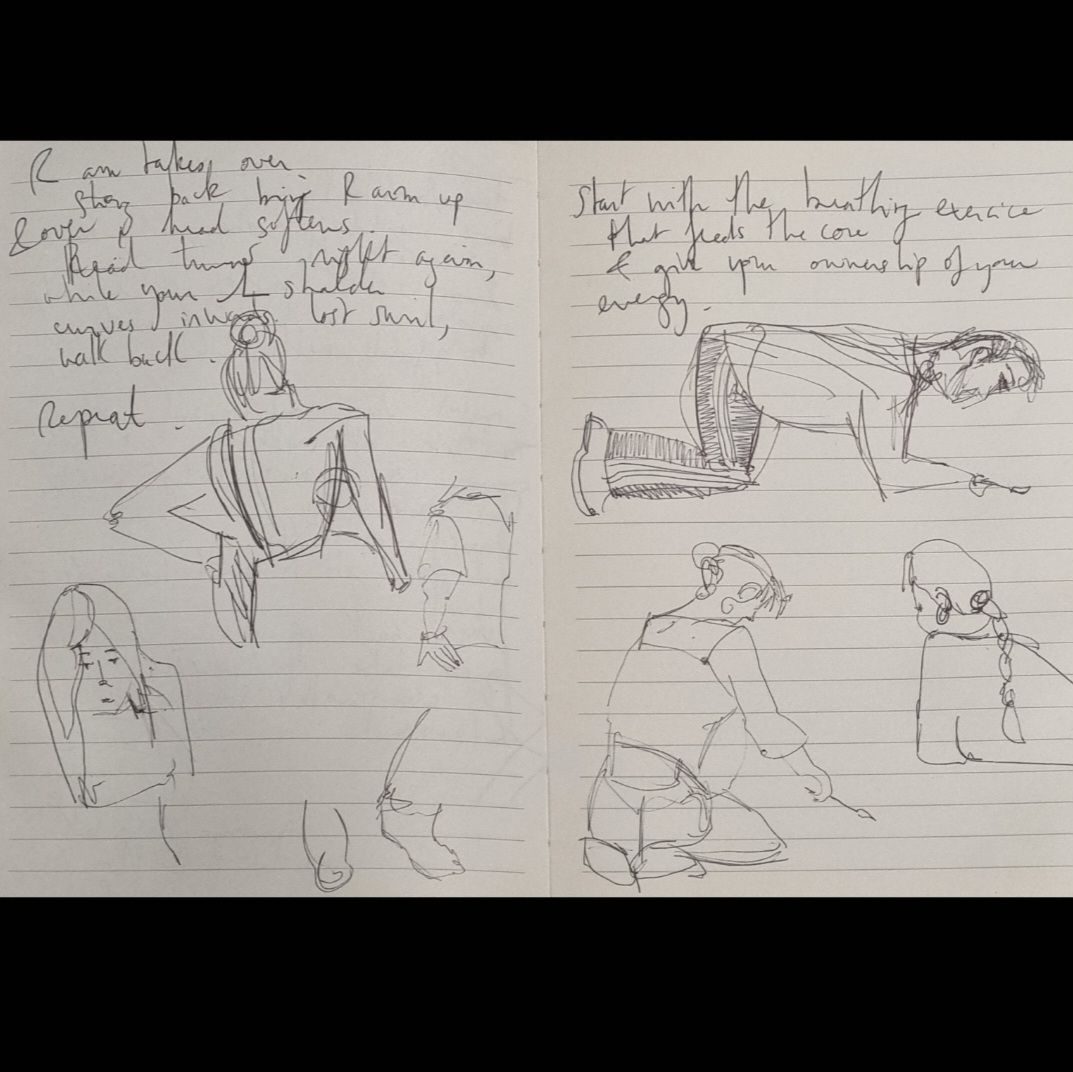 R arm takes over
strong back bring R arm up
& over & head softens.
Head turns right again,
while your L shoulder
curves inwards. lost swirl,
walk back.
Repeat.
Start with the breathing exercice
that feeds the core
& give your ownership of your
energy.